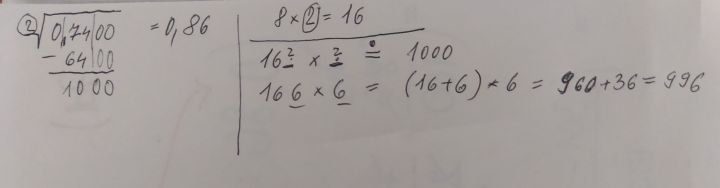 ②√0,7400 = 0,86
- 6400
1000
8 × 2 = 16
16? × ? ≐ 1000
16 6 × 6 = (16+6) * 6 = 960+36 = 996